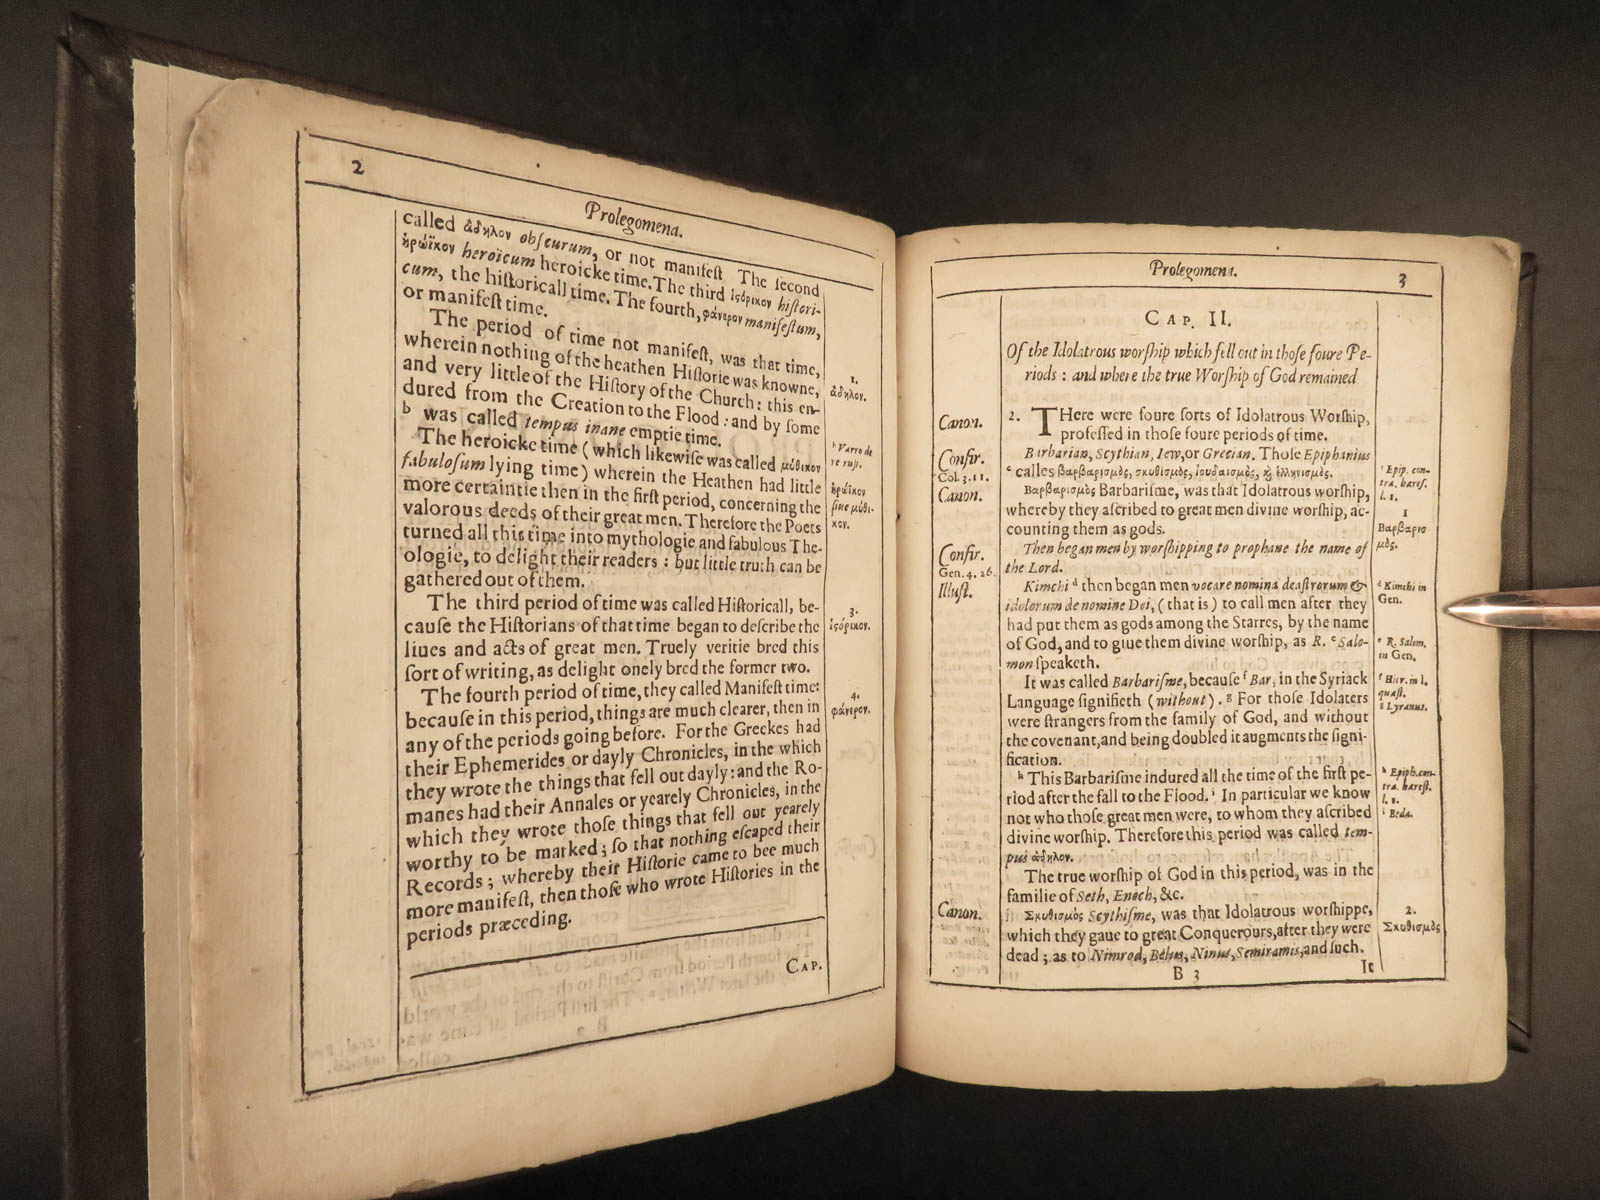 2
Prolegomena.
called ἄδηλον obſcurum, or not manifeſt The ſecond
ἡρώϊκον heroïcum heroicke time. The third ἱςόρικον hiſtori-
cum, the hiſtoricall time. The fourth, φάνερον manifeſtum,
or manifeſt time.
The period of time not manifeſt, was that time,
wherein nothing of the heathen Hiſtorie was knowne,
and very little of the Hiſtory of the Church: this en-
dured from the Creation to the Flood: and by ſome
b was called tempus inane emptie time.
The heroicke time (which likewiſe was called μύθικον
fabuloſum lying time) wherein the Heathen had little
more certaintie then in the firſt period, concerning the
valorous deeds of their great men. Therefore the Poets
turned all this time into mythologie and fabulous The-
ologie, to delight their readers: but little truth can be
gathered out of them.
The third period of time was called Hiſtoricall, be-
cauſe the Hiſtorians of that time began to deſcribe the
liues and acts of great men. Truely veritie bred this
ſort of writing, as delight onely bred the former two.
The fourth period of time, they called Manifeſt time:
becauſe in this period, things are much clearer, then in
any of the periods going before. For the Greekes had
their Ephemerides or dayly Chronicles, in the which
they wrote the things that fell out dayly: and the Ro-
manes had their Annales or yearely Chronicles, in the
which they wrote thoſe things that fell out yearely
worthy to be marked; ſo that nothing eſcaped their
Records; whereby their Hiſtorie came to bee much
more manifeſt, then thoſe who wrote Hiſtories in the
periods præceding.
CAP.
1.
ἄδηλον.
b Varro de
re ruſt.
ἡρώϊκον
ſiue μύθι-
κον.
3.
ἱςόρικον.
4.
φάνερον.
Prolegomena.
3
CAP. II.
Of the Idolatrous worſhip which fell out in thoſe foure Pe-
riods: and where the true Worſhip of God remained
2. THere were foure ſorts of Idolatrous Worſhip,
profeſſed in thoſe foure periods of time.
Barbarian, Scythian, Iew, or Grecian. Thoſe Epiphanius
c calles βαρβαρισμὸς, σκυθισμὸς, ἰουδαισμὸς, ϗ ἑλληνισμὸς.
Βαρβαρισμὸς Barbariſme, was that Idolatrous worſhip,
whereby they aſcribed to great men divine worſhip, ac-
counting them as gods.
Then began men by worſhipping to prophane the name of
the Lord.
Kimchi d then began men vocare nomina deaſtrorum &
idolorum de nomine Dei, (that is) to call men after they
had put them as gods among the Starres, by the name
of God, and to giue them divine worſhip, as R. e Salo-
mon ſpeaketh.
It was called Barbariſme, becauſe f Bar, in the Syriack
Language ſignifieth (without). g For thoſe Idolaters
were ſtrangers from the family of God, and without
the covenant, and being doubled it augments the ſigni-
fication.
h This Barbariſme indured all the time of the firſt pe-
riod after the fall to the Flood. i In particular we know
not who thoſe great men were, to whom they aſcribed
divine worſhip. Therefore this period was called tem-
pus ἄδηλον.
The true worſhip of God in this period, was in the
familie of Seth, Enoch, &c.
Σκυθισμὸς Scythiſme, was that Idolatrous worſhippe,
which they gaue to great Conquerours, after they were
dead; as to Nimrod, Belus, Ninus, Semiramis, and ſuch.
B 3
It
Canon.
Confir.
Col. 3. 11.
Canon.
Confir.
Gen. 4. 26.
Illuſt.
Canon.
c Epip. con-
tra. hæreſ.
l. 1.
1
Βαρβαρισ
μὸς.
d Kimchi in
Gen.
e R. Salom.
in Gen.
f Hier. in l.
quæſt.
g Lyranus.
h Epiph. con-
tra. hæreſ.
l. 1.
i Beda.
2.
Σκυθισμὸς